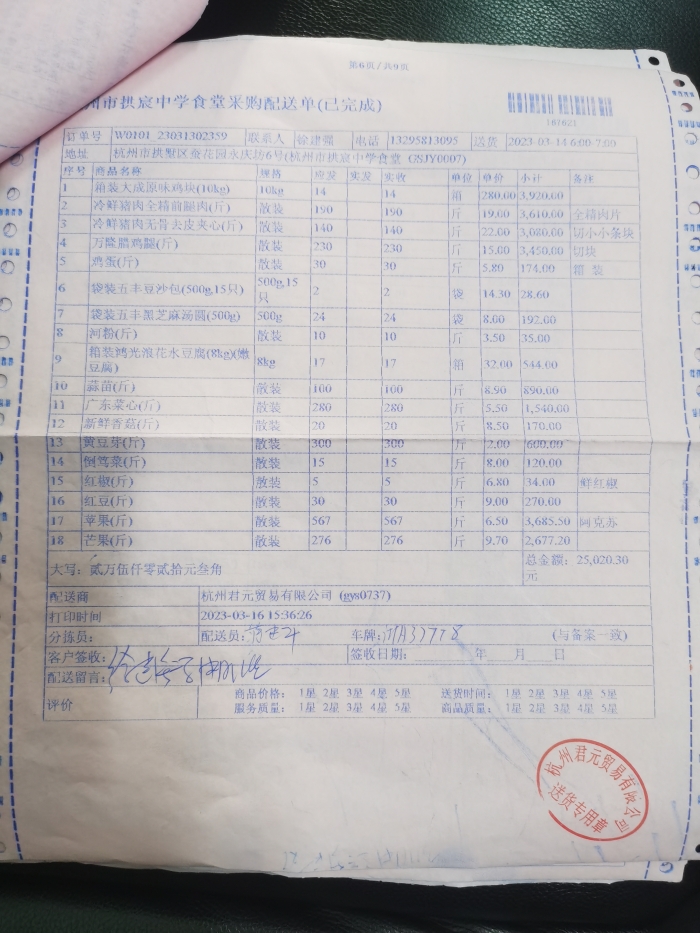 第6页/共9页
州市拱宸中学食堂采购配送单(已完成)
187621
订单号 W0101_23031302359 联系人 徐建强 电话 13295813095 送货 2023-03-14 6:00-7:00
地址 杭州市拱墅区蚕花园永庆坊6号(杭州市拱宸中学食堂 GSJY0007)
序号 商品名称 规格 应发 实发 实收 单位 单价 小计 备注
1 箱装大成原味鸡块(10kg) 10kg 14 14 箱 280.00 3,920.00
2 冷鲜猪肉全精前腿肉(斤) 散装 190 190 斤 19.00 3,610.00 全精肉片
3 冷鲜猪肉无骨去皮夹心(斤) 散装 140 140 斤 22.00 3,080.00 切小小条块
4 万隆腊鸡腿(斤) 散装 230 230 斤 15.00 3,450.00 切块
5 鸡蛋(斤) 散装 30 30 斤 5.80 174.00 箱 装
6 袋装五丰豆沙包(500g,15只) 500g,15只 2 2 袋 14.30 28.60
7 袋装五丰黑芝麻汤圆(500g) 500g 24 24 袋 8.00 192.00
8 河粉(斤) 散装 10 10 斤 3.50 35.00
9 箱装鸿光浪花水豆腐(8kg)(嫩豆腐) 8kg 17 17 箱 32.00 544.00
10 蒜苗(斤) 散装 100 100 斤 8.90 890.00
11 广东菜心(斤) 散装 280 280 斤 5.50 1,540.00
12 新鲜香菇(斤) 散装 20 20 斤 8.50 170.00
13 黄豆芽(斤) 散装 300 300 斤 2.00 600.00
14 倒笃菜(斤) 散装 15 15 斤 8.00 120.00
15 红椒(斤) 散装 5 5 斤 6.80 34.00 鲜红椒
16 红豆(斤) 散装 30 30 斤 9.00 270.00
17 苹果(斤) 散装 567 567 斤 6.50 3,685.50 阿克苏
18 芒果(斤) 散装 276 276 斤 9.70 2,677.20
大写: 贰万伍仟零贰拾元叁角 总金额: 25,020.30元
配送商 杭州君元贸易有限公司 (gys0737)
打印时间 2023-03-16 15:36:26
分拣员: 配送员: 车牌: (与备案一致)
客户签收: 签收日期: 年 月 日
配送留言:
评价 商品价格: 1星 2星 3星 4星 5星 送货时间: 1星 2星 3星 4星 5星
服务质量: 1星 2星 3星 4星 5星 商品质量: 1星 2星 3星 4星 5星
杭州君元贸易有限公司
送货专用章